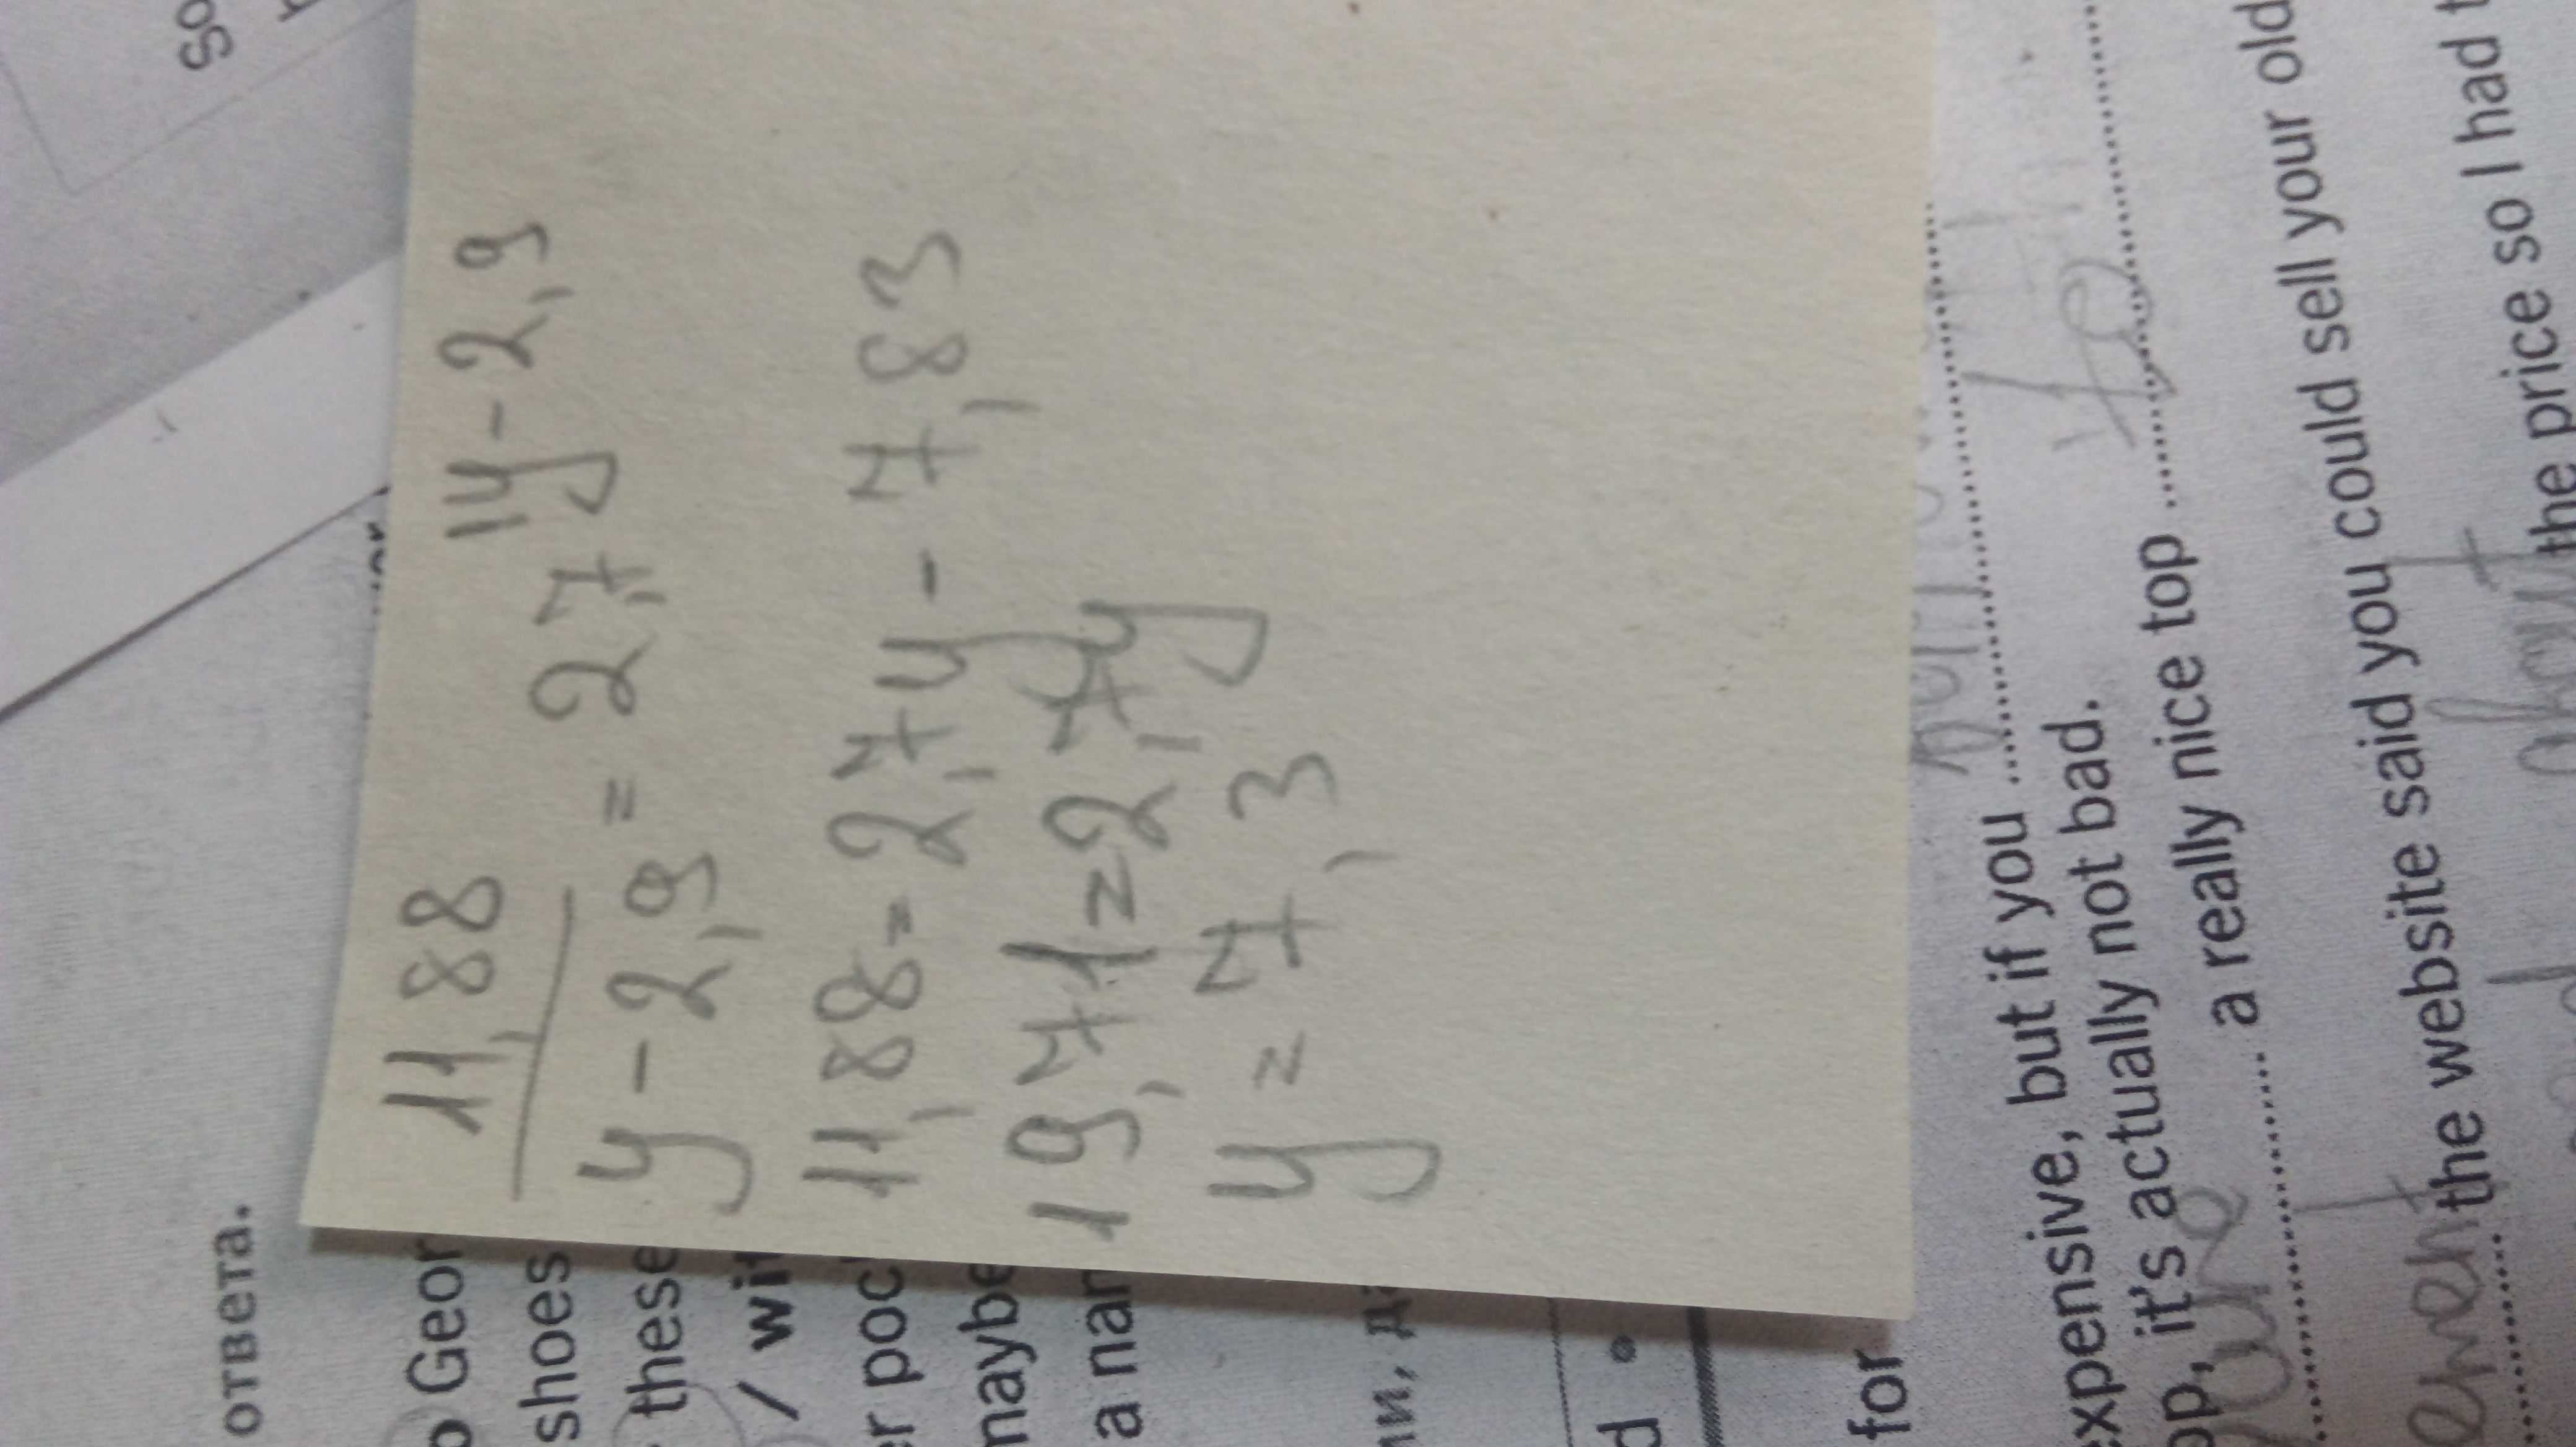 ответа.
Geor
shoes
these
/ wit
poc
maybe
a nar
11,88 |y-2,9
y-2,9 = 2,7
11,88=2,7y - 7,83
19,71=2,7y
y = 7,3
for
expensive, but if you
it's actually not bad.
a really nice top
the website said you could sell your old
about the price so I had t